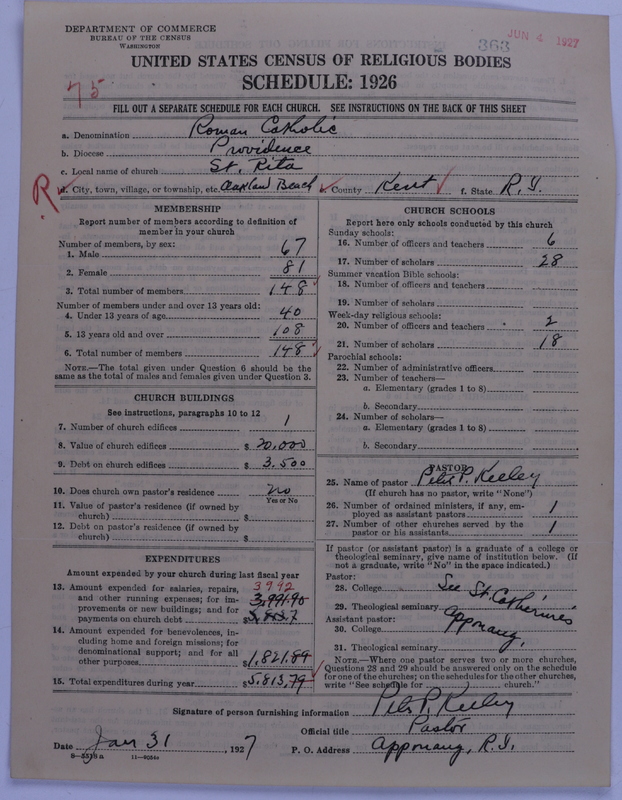 DEPARTMENT OF COMMERCE
BUREAU OF THE CENSUS
WASHINGTON
363
JUN 4 1927
UNITED STATES CENSUS OF RELIGIOUS BODIES
SCHEDULE: 1926
75
FILL OUT A SEPARATE SCHEDULE FOR EACH CHURCH. SEE INSTRUCTIONS ON THE BACK OF THIS SHEET
a. Denomination Roman Catholic
b. Diocese Providence
c. Local name of church St. Rita
R
d. City, town, village, or township, etc. Oakland Beach e. County Kent f. State R.I.
MEMBERSHIP
Report number of members according to definition of
member in your church
Number of members, by sex:
1. Male 67
2. Female 81
3. Total number of members 148
Number of members under and over 13 years old:
4. Under 13 years of age 40
5. 13 years old and over 108
6. Total number of members 148
NOTE.—The total given under Question 6 should be the
same as the total of males and females given under Question 3.
CHURCH BUILDINGS
See instructions, paragraphs 10 to 12
7. Number of church edifices 1
8. Value of church edifices $ 20,000
9. Debt on church edifices $ 3.500
10. Does church own pastor's residence no
Yes or No
11. Value of pastor's residence (if owned by
church) $
12. Debt on pastor's residence (if owned by
church) $
EXPENDITURES
Amount expended by your church during last fiscal year
13. Amount expended for salaries, repairs, 3992
and other running expenses; for im- 3,991.90
provements or new buildings; and for
payments on church debt $
14. Amount expended for benevolences, in-
cluding home and foreign missions; for
denominational support; and for all
other purposes $ 1,821.89
15. Total expenditures during year $ 5.813,79
CHURCH SCHOOLS
Report here only schools conducted by this church
Sunday schools:
16. Number of officers and teachers 6
17. Number of scholars 28
Summer vacation Bible schools:
18. Number of officers and teachers
19. Number of scholars
Week-day religious schools:
20. Number of officers and teachers 2
21. Number of scholars 18
Parochial schools:
22. Number of administrative officers
23. Number of teachers—
a. Elementary (grades 1 to 8)
b. Secondary
24. Number of scholars—
a. Elementary (grades 1 to 8)
b. Secondary
PASTOR
25. Name of pastor Peter P. Keeley
(If church has no pastor, write "None")
26. Number of ordained ministers, if any, em-
ployed as assistant pastors 1
27. Number of other churches served by the
pastor or his assistants 1
If pastor (or assistant pastor) is a graduate of a college or
theological seminary, give name of institution below. (If
not a graduate, write "No" in the space indicated.)
Pastor:
28. College See St. Catherine's
29. Theological seminary Apponaug,
Assistant pastor:
30. College
31. Theological seminary
NOTE.—Where one pastor serves two or more churches,
Questions 28 and 29 should be answered only on the schedule
for one of the churches; on the schedules for the other churches,
write "See schedule for church."
Signature of person furnishing information Peter P. Keeley
Official title Pastor
Date Jan 31, 1927 P. O. Address Apponaug, R.I.
8—5518a 11—9054a